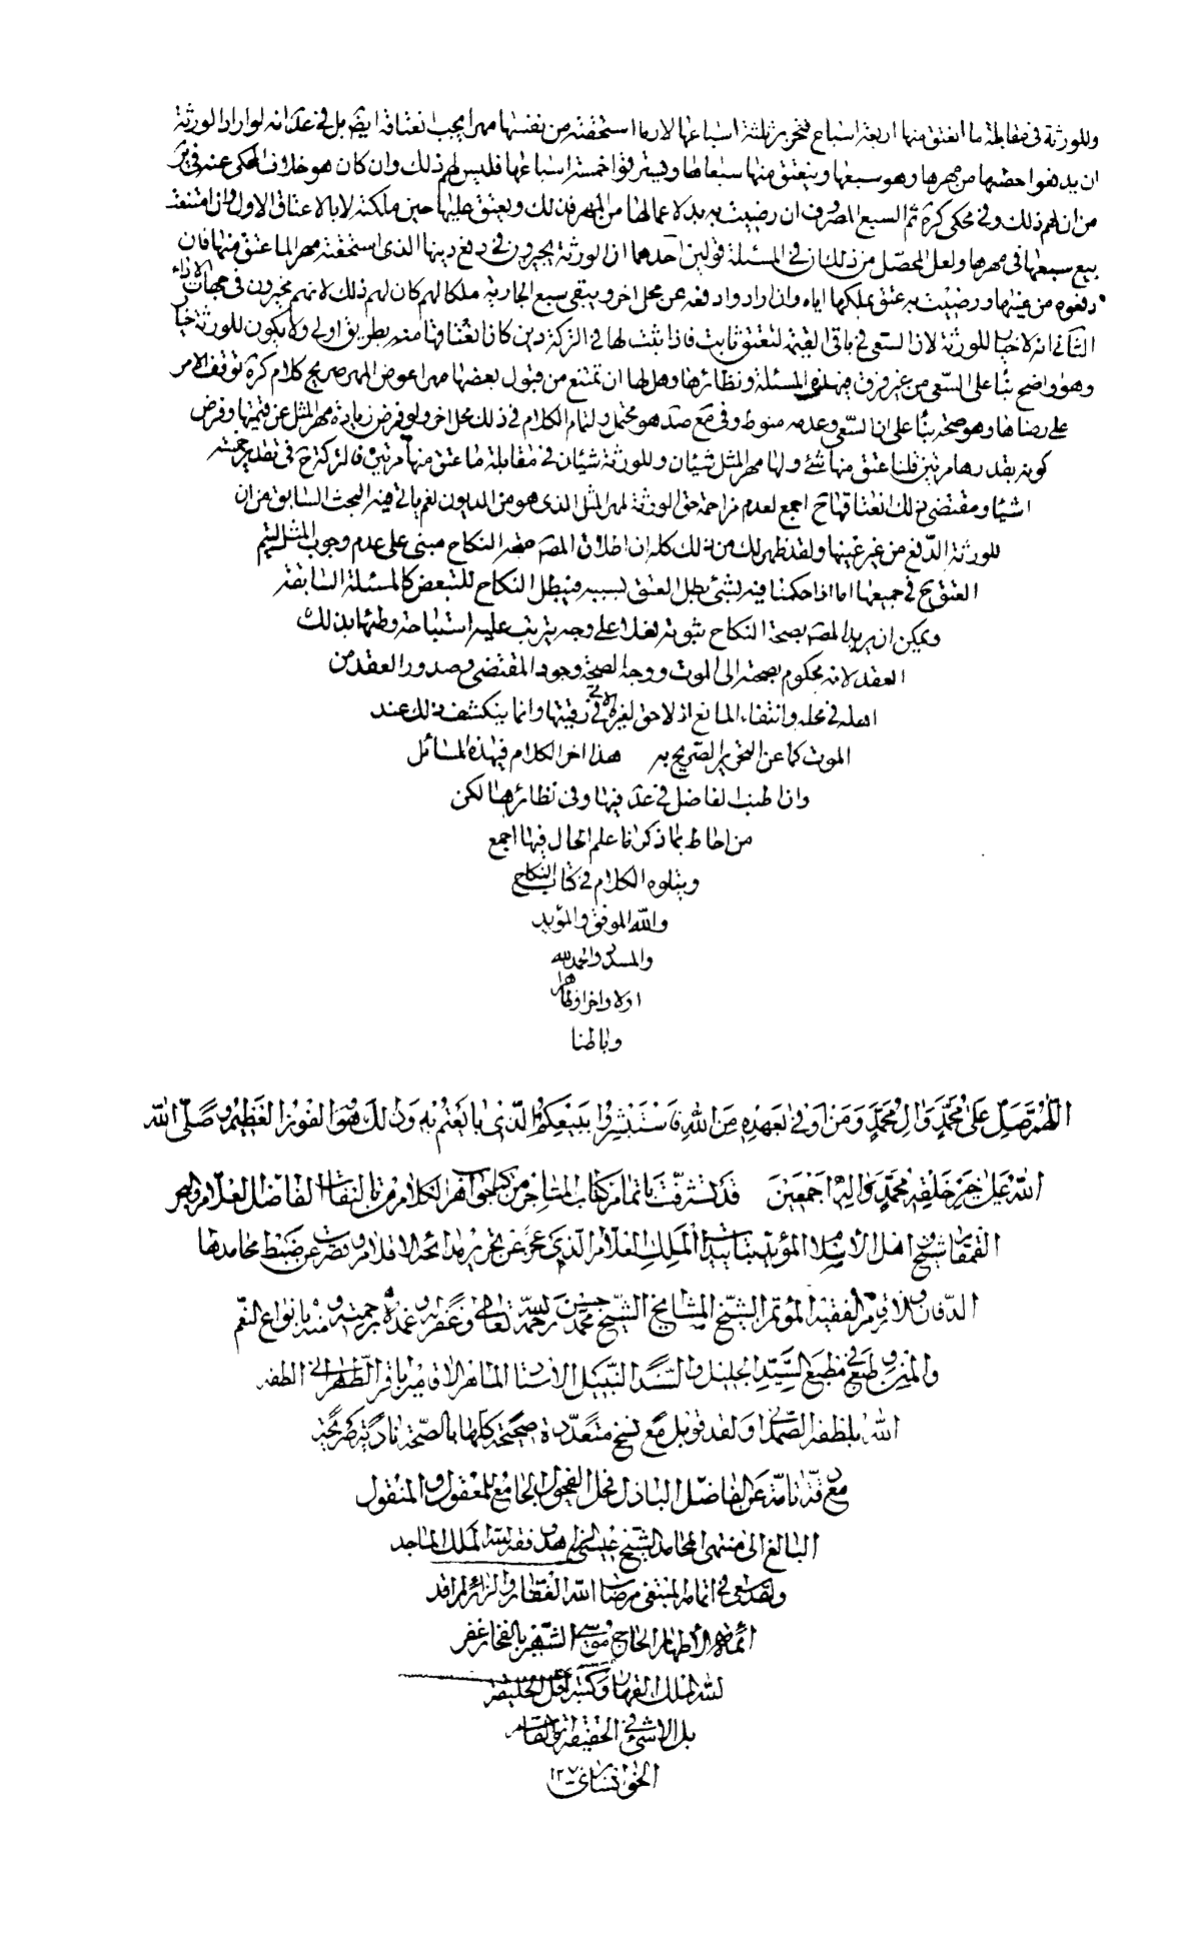 وللورثة في مقابلة ما انعتق منها اربعة اسباع فتحرير ثلثة اسباعها الان ما استحقته من نفسها مهرا يجب انعتاقه ايضا بل في عدانه لو اراد الورثة
ان يدهوا حصتها من مهرها وهو سبعها وينعتق منها سبعاها ويسترقوا خمسة اسباعها فليس لهم ذلك وان كان هو خلاف المحكى عنه في
من ان لهم ذلك وفي محكى كره ثم السبع المصروف ان رضيت به بدلا عما لها من المهر فذلك ويعتق عليها حين ملكته لا بالاعتاق الاول وان امتنعت
بيع سبعها في مهرها ولعل المحصل من ذلك ان في المسئلة قولين احدهما ان الورثة يجبرون في دفع دينها الذى استحقته مهرا لما عتق منها فان
دفعوه من عينها ورضيت به عتق بملكها اياه وان ارادوا دفعه عن محل اخر ويبقى سبع الجارية ملكا لهم كان لهم ذلك لانهم مخيرون في جهات الاداء
الثانى انه لا خيار للورثة لان السعى في باقى القيمة لتعتق ثابت فاذا ثبت لها في التركة دين كان انعتاقها منه بطريق اولى ولا يكون للورثة خيار
وهو واضح بناً على السعى من غير فرق فيه هذه المسئلة ونظائرها وهل لها ان تمتنع من قبول بعضها مهرا عوض المهر صريح كلام كره توقف الامر
على رضاها وهو متجه بناً على ان السعى وعدمه منوط وفي مع صد هو محتمل ولتمام الكلام في ذلك محل اخر ولو فرض زيادة مهر المثل عن قيمتها وفرض
كونه بقدرها مرتين قلنا عتق منها شئ ولها مهر المثل شيئان وللورثة شيئان في مقابلة ما عتق منها مرتين فالتركة ح في تقدير خمسة
اشياء ومقتضى ذلك انعتاقها ح اجمع لعدم مزاحمة حق الورثة لمهر المثل الذى هو من الديون نعم ياتى فيه البحث السابق من ان
للورثة الدفع من غير عينها ولقد ظهر لك من ذلك كله ان اطلاق المصه صحة النكاح مبنى على عدم وجوب المثل ليتم
العتق ح في جميعها اما اذا حكمنا فيه بشئ بطل العتق بسببه فيبطل النكاح للتبعض كالمسئلة السابقة
ويمكن ان يريد المصه بصحة النكاح ثبوته فعلا على وجه يترتب عليه استباحة وطئها بذلك
العقد لانه محكوم بصحته الى الموت ووجه الصحة وجود المقتضى وصدور العقد من
اهله في محله وانتفاء المانع اذ لا حق لغيره الان في رقبتها وانما ينكشف ذلك عند
الموت كما عن التحرير التصريح به هذا اخر الكلام في هذه المسائل
وان اطنب الفاضل في عد فيها وفى نظائرها لكن
من احاط بما ذكرنا علم الحال فيها اجمع
ويتلوه الكلام في كتاب النكاح
والله الموفق والمؤيد
والمسدد والحمد لله
اولا واخرا وظاهرا
وباطنا
اللهم صل على محمد وال محمد ومن اوفى بعهده من الله فاستبشروا ببيعكم الذى بايعتم به وذلك هو الفوز العظيم وصلى الله
الله على خير خلقه محمد واله اجمعين قد تشرفت باتمام كتاب المتاجر من كتاب جواهر الكلام من تاليفات الفاضل العلام والبحر
القمقام شيخ اهل الاسلام المؤيد بتاييد الملك العلام الذى عجز عن تحرير مدائحه الاقلام وقصرت عن ضبط محامدها
الدفاتر والارقام الفقيه المؤتمن الشيخ المشايخ الشيخ محمد حسن رحمه الله تعالى وغفر له وغمده برحمته ومنه بانواع النعم
والمنن وطبع في مطبع السيد الجليل والسند النبيل الاستاد الماهر الاقا ميرباقر الطهرانى اظفره
الله بلطفه الصمدانى ولقد قوبل مع نسخ متعددة صحيحة كلها بالصحة نادية صريحة
مع قدانامة عن الفاضل الباذل فحل الفحول الجامع للمعقول والمنقول
البالغ الى منتهى المحامد الشيخ وفقه الله الملك الماجد
ولقد سعى في اتمامه المبتغى مرضات الله الغفار والزائر لمراقد
ائمة الاطهار الحاج موسى الشهير بالفخار غفر
لله الملك القهار وكتبه اقل الخليقة
بل لاشئ في الحقيقة
الخوانسارى ١٢٧